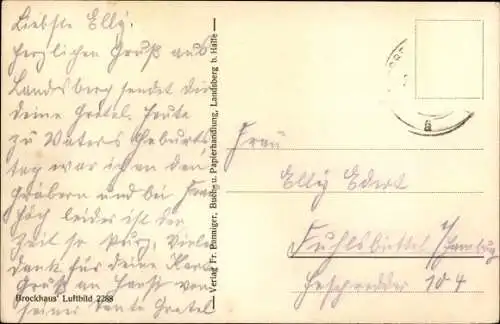 Liebste Elly.
Herzlichen Gruß aus
Landsberg sendet dir
deine Gretel. Heute
zu Vaters Geburts
tag war ich an den
Gräbern und bei Frau
leider ist der
Zeit so kurz, Viele
Dank für deine Karte
Gruß an Horst von
seiner Tante Gretel
Brockhaus' Luftbild 2288
Verlag Fr. Pfenniger, Buch- u. Papierhandlung, Landsberg b. Halle
Frau
Elly Ederl
Fuhlsbüttel b/Hamburg
104
a